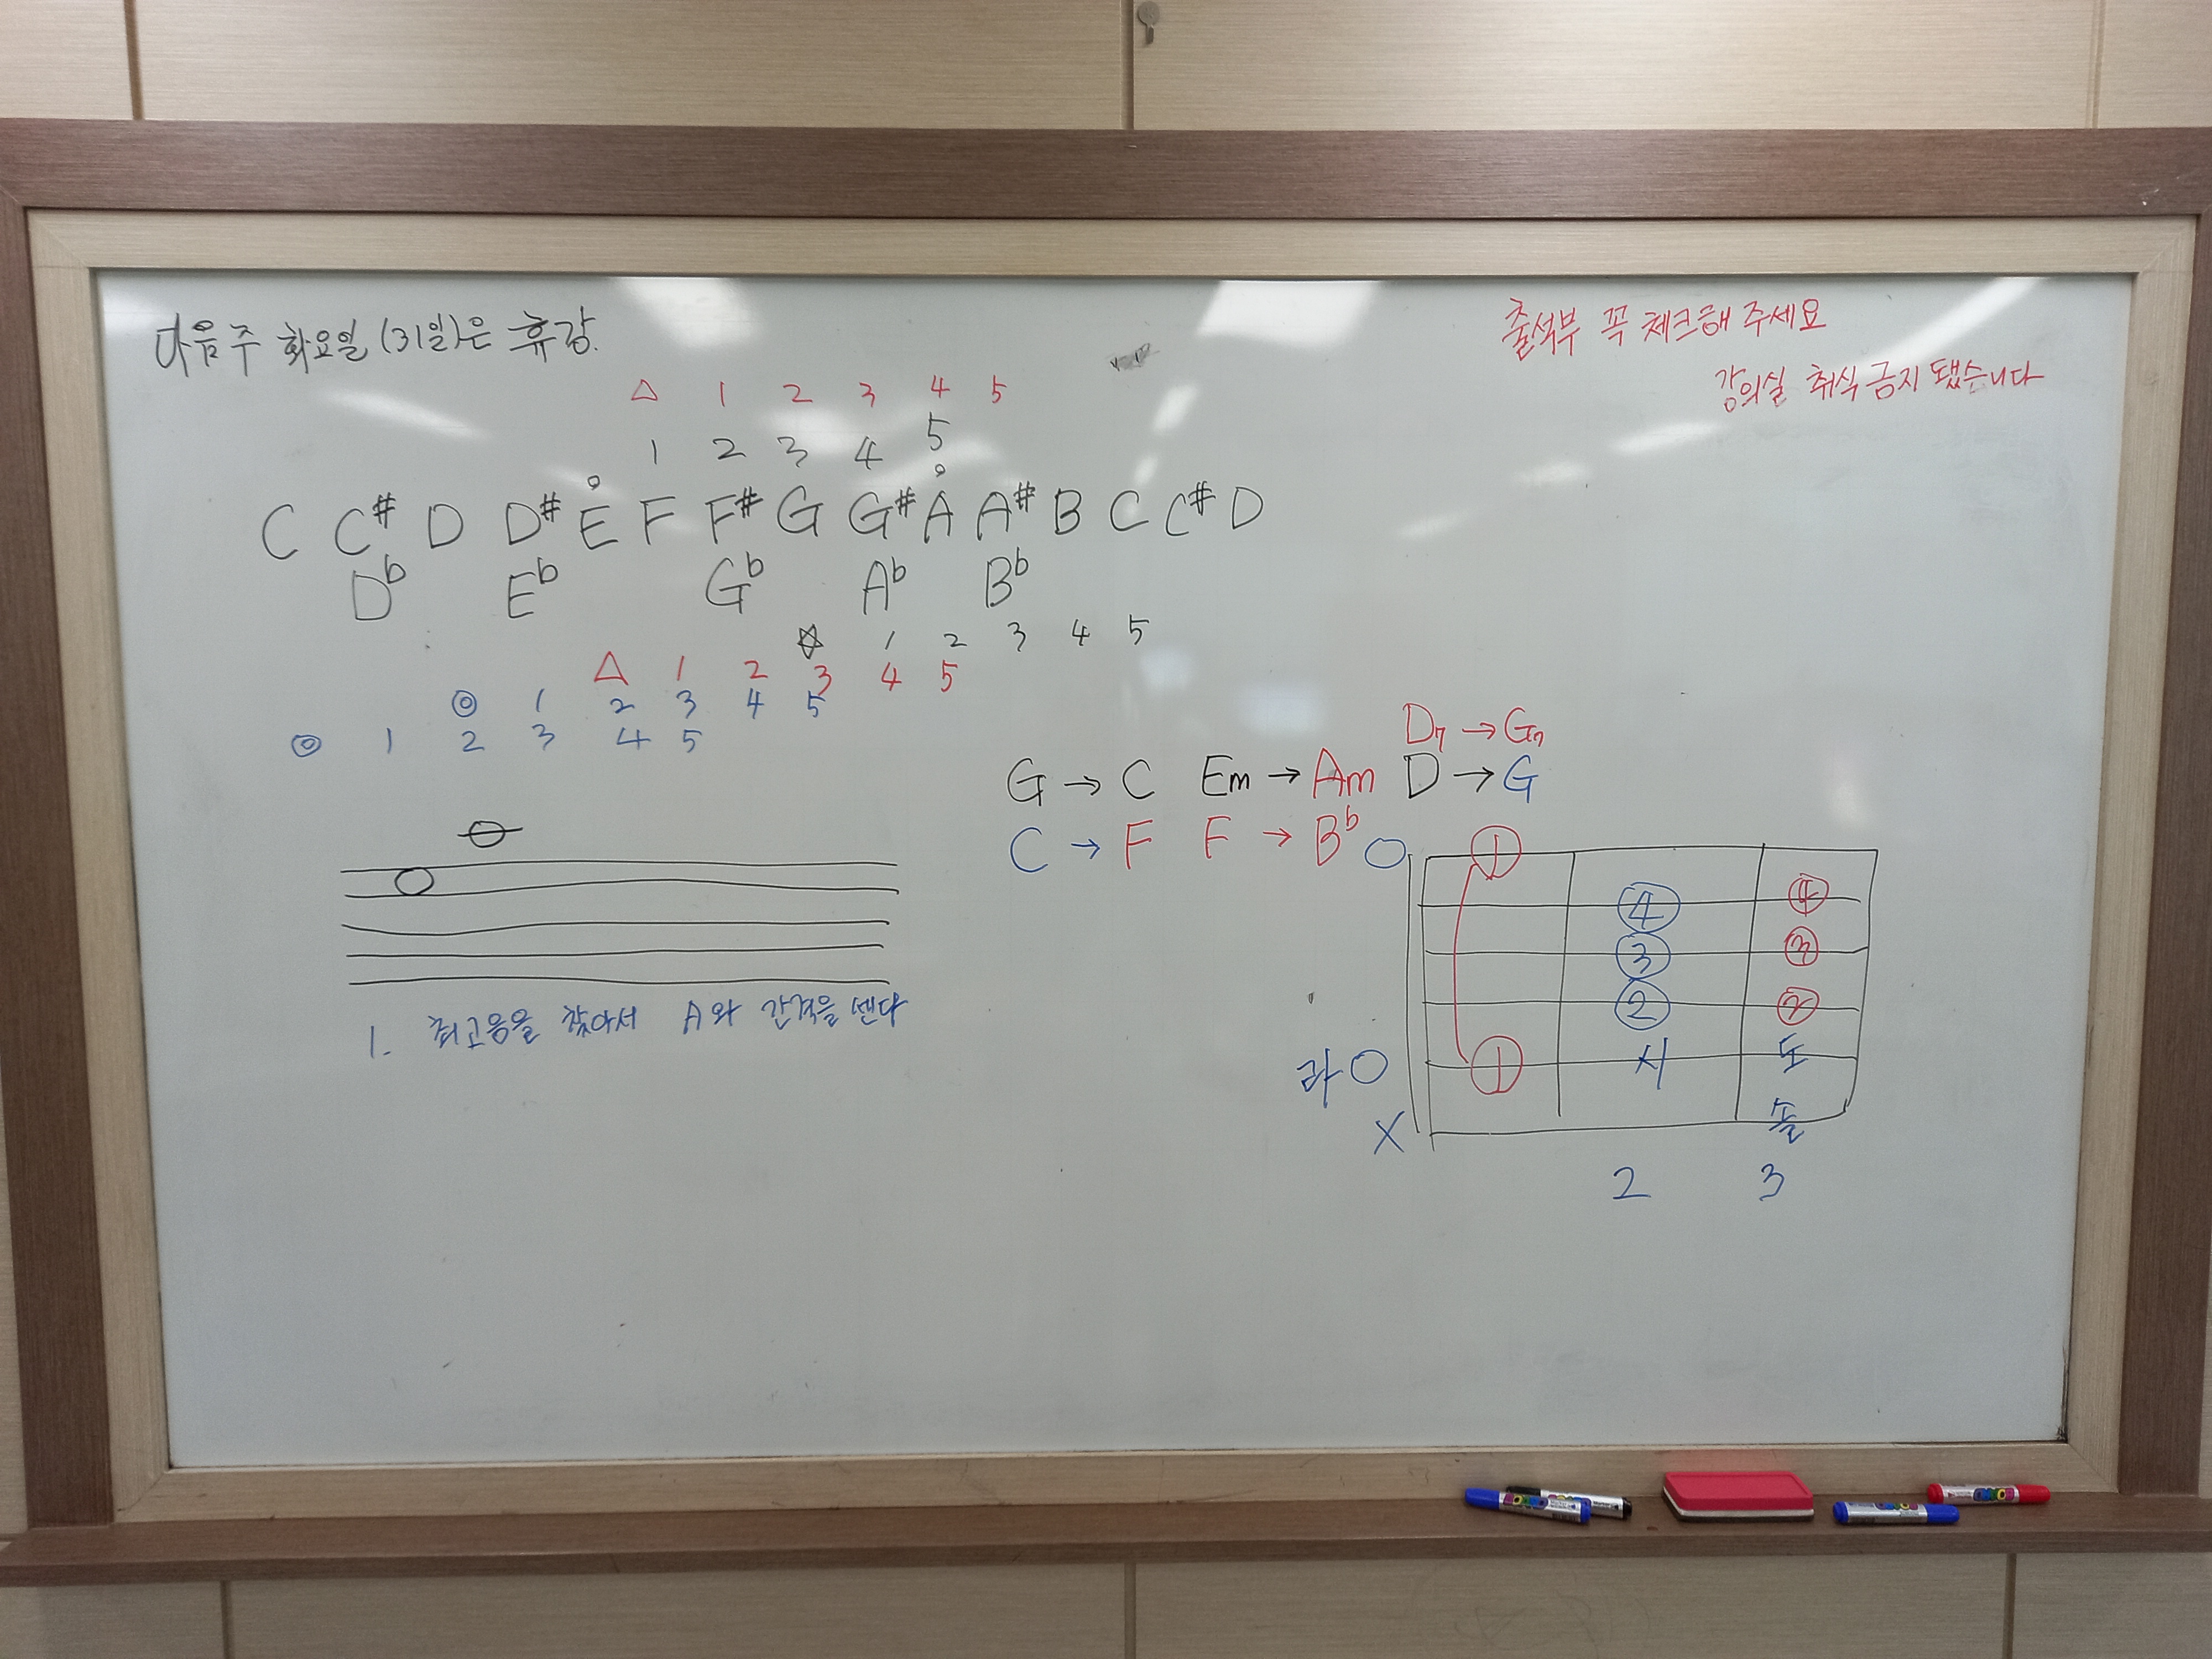 다음주 화요일 (31일)은 휴강.
출석부 꼭 체크해 주세요
강의실 취식 금지 됐습니다
△ 1 2 3 4 5
1 2 3 4 5
C C# D D# E F F# G G# A A# B C C# D
D♭ E♭ G♭ A♭ B♭
☆ 1 2 3 4 5
△ 1 2 3 4 5
◎ 1 2 3 4 5
◎ 1 2 3 4 5
D7 → G7
G → C Em → Am D → G
C → F F → B♭
1. 최고음을 찾아서 A와 간격을 센다
○ ①
④ ④
③ ③
② ②
라 ○ ① 시 도
X 솔
2 3